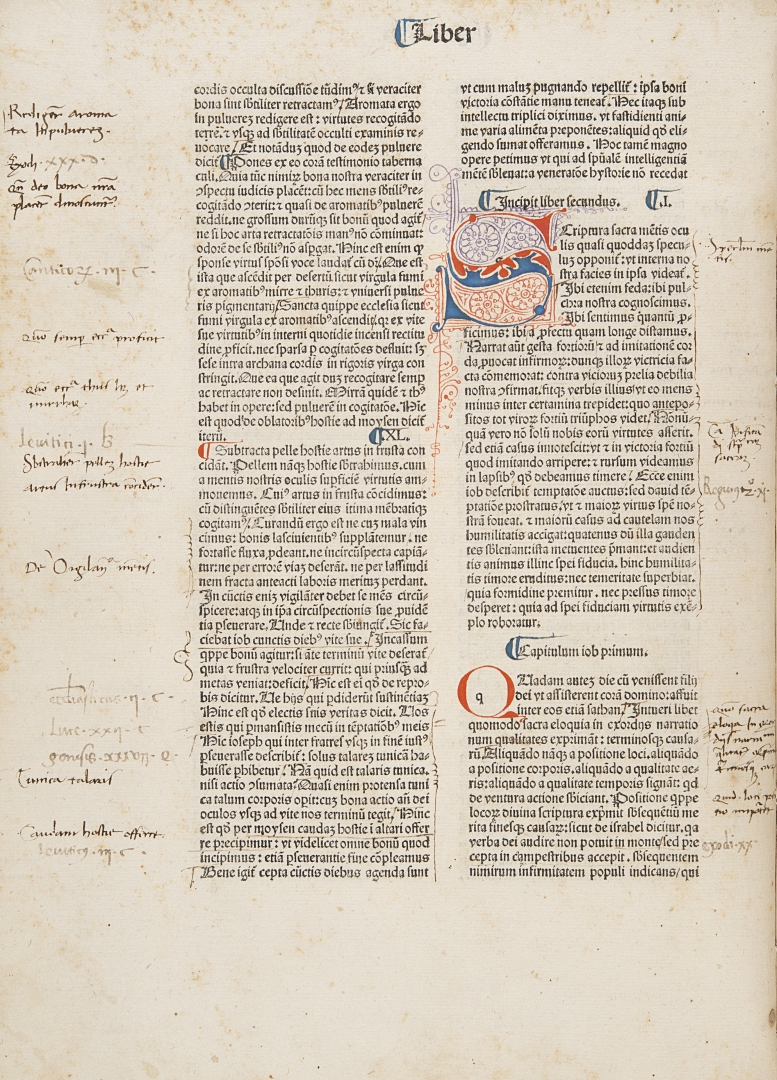 Liber
cordis occulta discussiõe tũdim⁹ ⁊ si veraciter
bona sint sbtiliter retractam⁹. Aromata ergo
in pulverez redigere est: virtutes recogitãdo
terre. ⁊ vsqz ad sbtilitatẽ occulti examinis re-
uocare. Et notãduz quod de eodez puluere
dicit. Pones ex eo corã testimonio taberna
culi. Quia tũc nimirz bona nostra veraciter in
ↄspectu iudicis placẽt: cũ hec mens sbtili⁹ re-
cogitãdo ↄterit: ⁊ quasi de aromatib⁹ puluerẽ
reddit. ne grossum durũqz sit bonũ quod agit
ne si hoc arta retractatõis man⁹ nõ cõminuat:
odorẽ de se sbtili⁹ nõ aspgat. Hinc est enim qz
sponse virtus spõsi voce laudat cũ dr. Que est
ista que ascẽdit per desertũ sicut virgula fumi
ex aromatib⁹ mirre ⁊ thuris: ⁊ vniuersi pulue
ris pigmentarij. Sancta quippe ecclesia sicut
fumi virgula ex aromatib⁹ ascendit. qz ex vite
sue virtutib⁹ in interni quotidie incensi rectitu
dine pficit. nec sparsa p cogitatões defluit: sz
sese intra archana cordis in rigoris virga con
stringit. Que ea que agit duz recogitare semp
ac retractare non desinit. Mirrã quidẽ ⁊ th⁹
habet in opere: sed puluerẽ in cogitatõe. Hic
est quod de oblatorib⁹ hostie ad moysen dicit
iterũ. XL.
Subtracta pelle hostie artus in frusta con
cidãt. Pellem nãqz hostie sbtrahimus. cum
a mentis nostris oculis supficiẽ virtutis am-
mouemus. Cui⁹ artus in frusta cõcidimus:
cũ distinguẽtes sbtiliter eius itima mẽbratiqz
cogitam⁹. Curandũ ergo est ne cuz mala vin
cimus: bonis lasciuientib⁹ supplãtemur. ne
fortasse fluxa pdeant. ne incircũspecta capiã-
tur: ne per errorẽ viaz deserãt. ne per lassitudi
nem fracta anteacti laboris meritum perdant.
In cũctis eniz vigilãter debet se mẽs circũ-
spicere: atqz in ipa circũspectionis sue puidẽ
tia pseuerare. Unde ⁊ recte sbiungit. Sic fa-
ciebat iob cunctis dieb⁹ vite sue. Incassum
qppe bonũ agitur: si ãte terminũ vite deserat
quia ⁊ frustra velociter currit: qui priusqz ad
metas veniat: deficit. Hic est ei qd de repro-
bis dicitur. Ue hijs qui pdiderũt sustinẽtiaz
Hinc est qd electis suis veritas dicit. Uos
estis qui pmansistis mecũ in tẽptatõib⁹ meis
Hic ioseph qui inter fratres vsqz in finẽ iust⁹
pseuerasse describit: solus talarez tunicã ha-
buisse phibetur. Nã quid est talaris tunica.
nisi actio ↄsumata. Quasi enim protensa tuni
ca talum corporis opit: cuz bona actio añ dei
oculos vsqz ad vite nos terminũ tegit. Hinc
est qd per moysen caudaz hostie ĩ altari offer
re precipimur: vt videlicet omne bonũ quod
incipimus: etiã pseuerantie fine cõpleamus
Bene igit cepta cũctis diebus agenda sunt
vt cum maluz pugnando repellit: ipsa boni
victoria cõstãtie manu teneat. Hec itaqz sub
intellectu triplici diximus. vt fastidienti ani-
me varia alimẽta preponẽtes: aliquid qd eli-
gendo sumat offeramus. Hoc tamẽ magno
opere petimus vt qui ad spũalẽ intelligentiã
mẽtẽ sbleuat: a veneratõe hystorie nõ recedat
Incipit liber secundus. .I.
Scriptura sacra mẽtis ocu
lis quasi quoddaz specu-
luz opponit: vt interna no
stra facies in ipsa videat.
Ibi etenim feda: ibi pul-
chra nostra cognoscimus.
Ibi sentimus quantũ p-
ficimus: ibi a pfectu quam longe distamus.
Narrat aũt gesta fortiorũ: ⁊ ad imitationẽ cor
da puocat infirmoz: dunqz illoz victricia fa-
cta cõmemorat: contra vicioruz prelia debilia
nostra ↄfirmat. fitqz verbis illius: vt eo mens
minus inter certamina trepidet: quo antepo-
sitos tot viroz fortiũ triũphos videt. Nõnũ-
quã vero nõ solũ nobis eorũ virtutes asserit.
sed etiã casus innotescit: vt ⁊ in victoria fortiũ
quod imitando arripere: ⁊ rursum videamus
in lapsib⁹ qd debeamus timere. Ecce enim
iob describit temptatõe auctus: sed dauid tẽ-
ptatiõe prostratus. vt ⁊ maior⁹ virtus spẽ no-
strã foueat. ⁊ maiorũ casus ad cautelam nos
humilitatis accigat: quatenus dũ illa gauden
tes sbleuant: ista metuentes pmant: et audien
tis animus illinc spei fiducia. hinc humilita-
tis timore eruditus: nec temeritate superbiat.
quia formidine premitur. nec pressus timore
desperet: quia ad spei fiduciam virtutis exẽ-
plo roboratur.
Capitulum iob primum.
Quadam autez die cũ venissent filij
dei vt assisterent corã domino: affuit
inter eos etiã sathan. Intueri libet
quomodo sacra eloquia in exordijs narratio
num qualitates exprimãt: terminosqz causa-
rũ. Aliquãdo nãqz a positione loci. aliquãdo
a positione corporis. aliquãdo a qualitate ae-
ris: aliquãdo a qualitate temporis signãt: qd
de ventura actione sbiciant. Positione qppe
locorz diuina scriptura expmit sbsequẽtiũ me
rita finesqz causaz: sicut de israhel dicitur. qa
verba dei audire non potuit in monte: sed pre
cepta in campestribus accepit. sbsequentem
nimirum infirmitatem populi indicans: qui